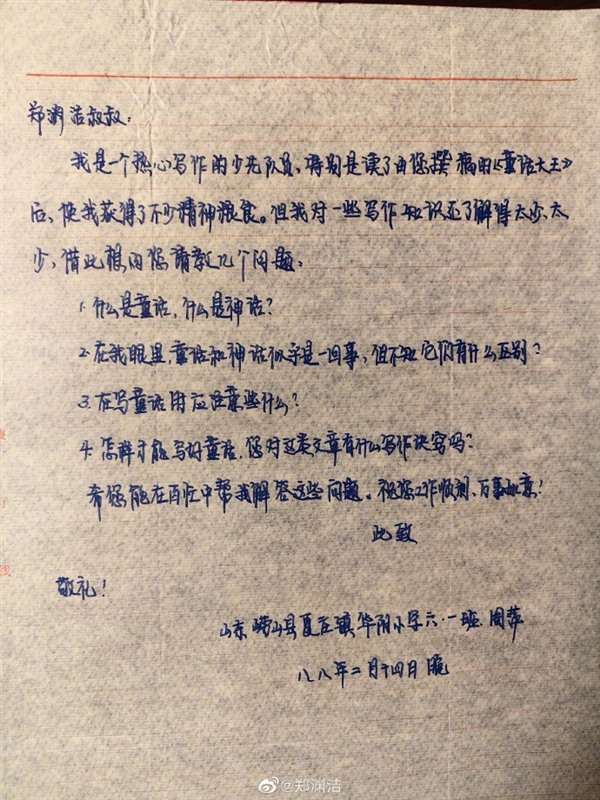 郑渊洁叔叔:
我是一个热心写作的少先队员,特别是读了由您撰稿的《童话大王》
后,使我获得了不少精神粮食。但我对一些写作知识还了解得太少、太
少,借此想向您请教几个问题。
1.什么是童话,什么是神话?
2.在我眼里,童话和神话似乎是一回事,但不知它们有什么区别?
3.在写童话时应注意些什么?
4.怎样才能写好童话,您对这类文章有什么写作诀窍吗?
希您能在百忙中帮我解答这些问题。祝您工作顺利、万事如意!
此致
敬礼!
山东崂山县夏庄镇华阴小学六·一班 周萍
八八年二月十四日晚
@郑渊洁